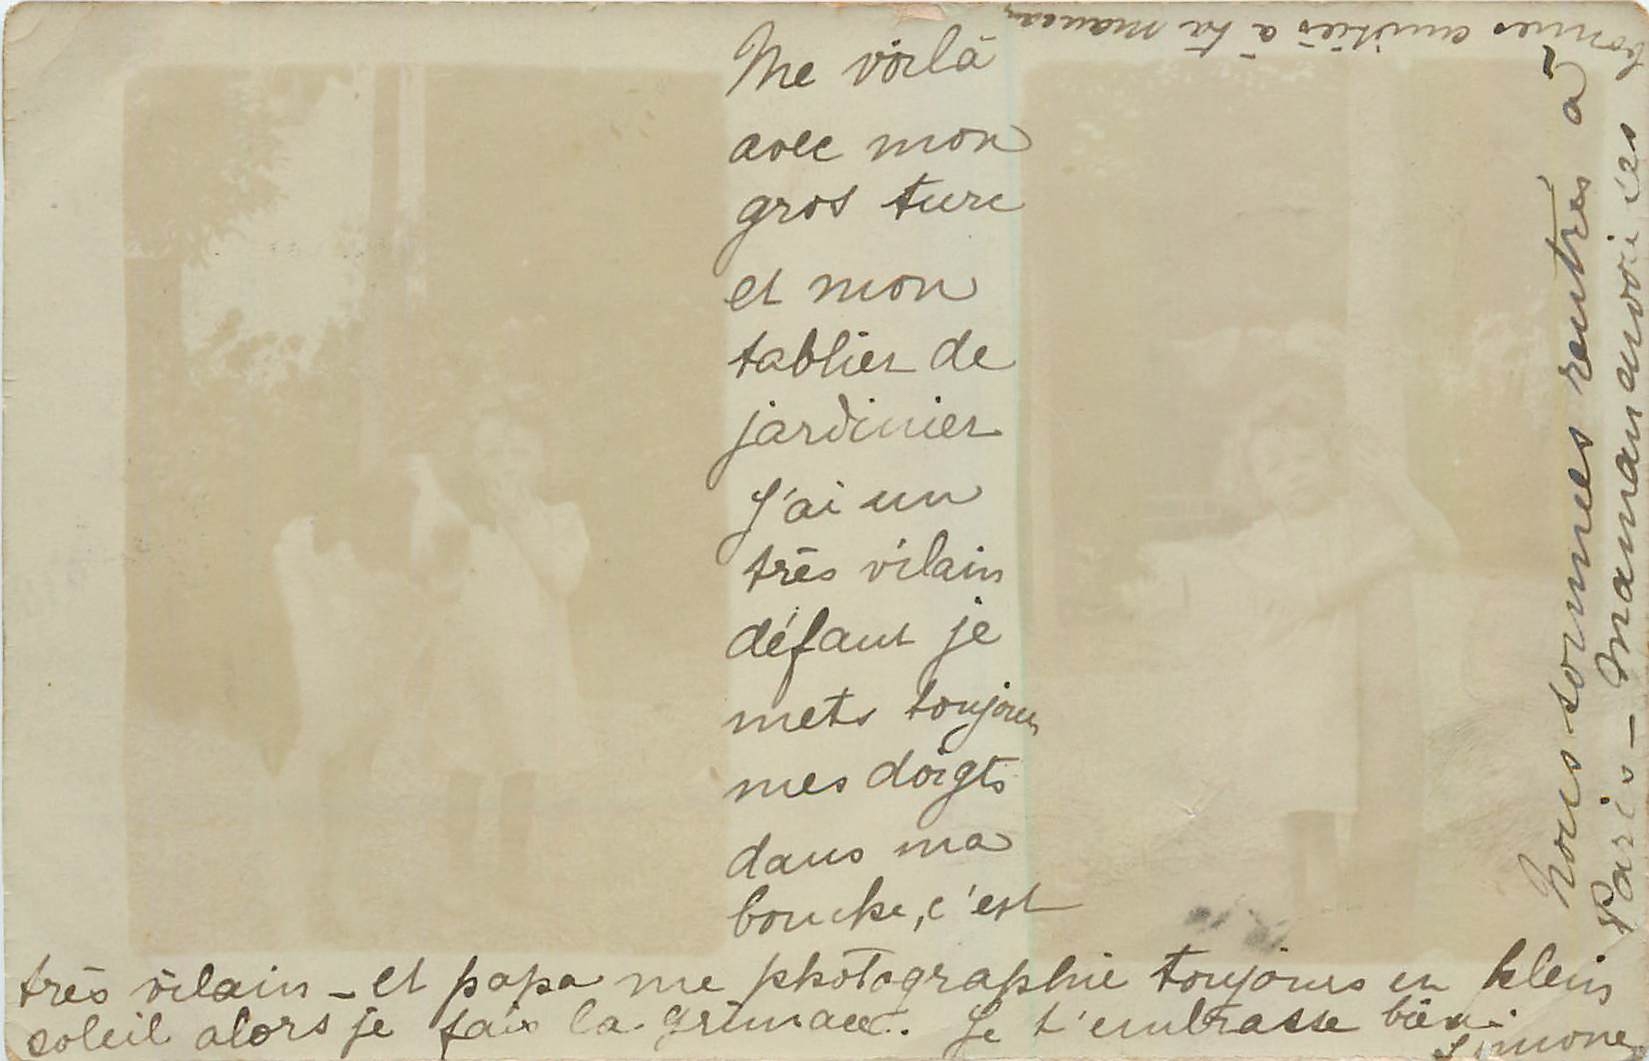 Me voilà
avec mon
gros turc
et mon
tablier de
jardinier
J'ai un
très vilain
défaut je
mets toujours
mes doigts
dans ma
bouche, c'est
très vilain - et papa me photographie toujours en plein
soleil alors je fais la grimace. Je t'embrasse bien.
Simone
Nous sommes rentrés à
Paris - Maman envoie ses
bonnes amitiés à ta maman